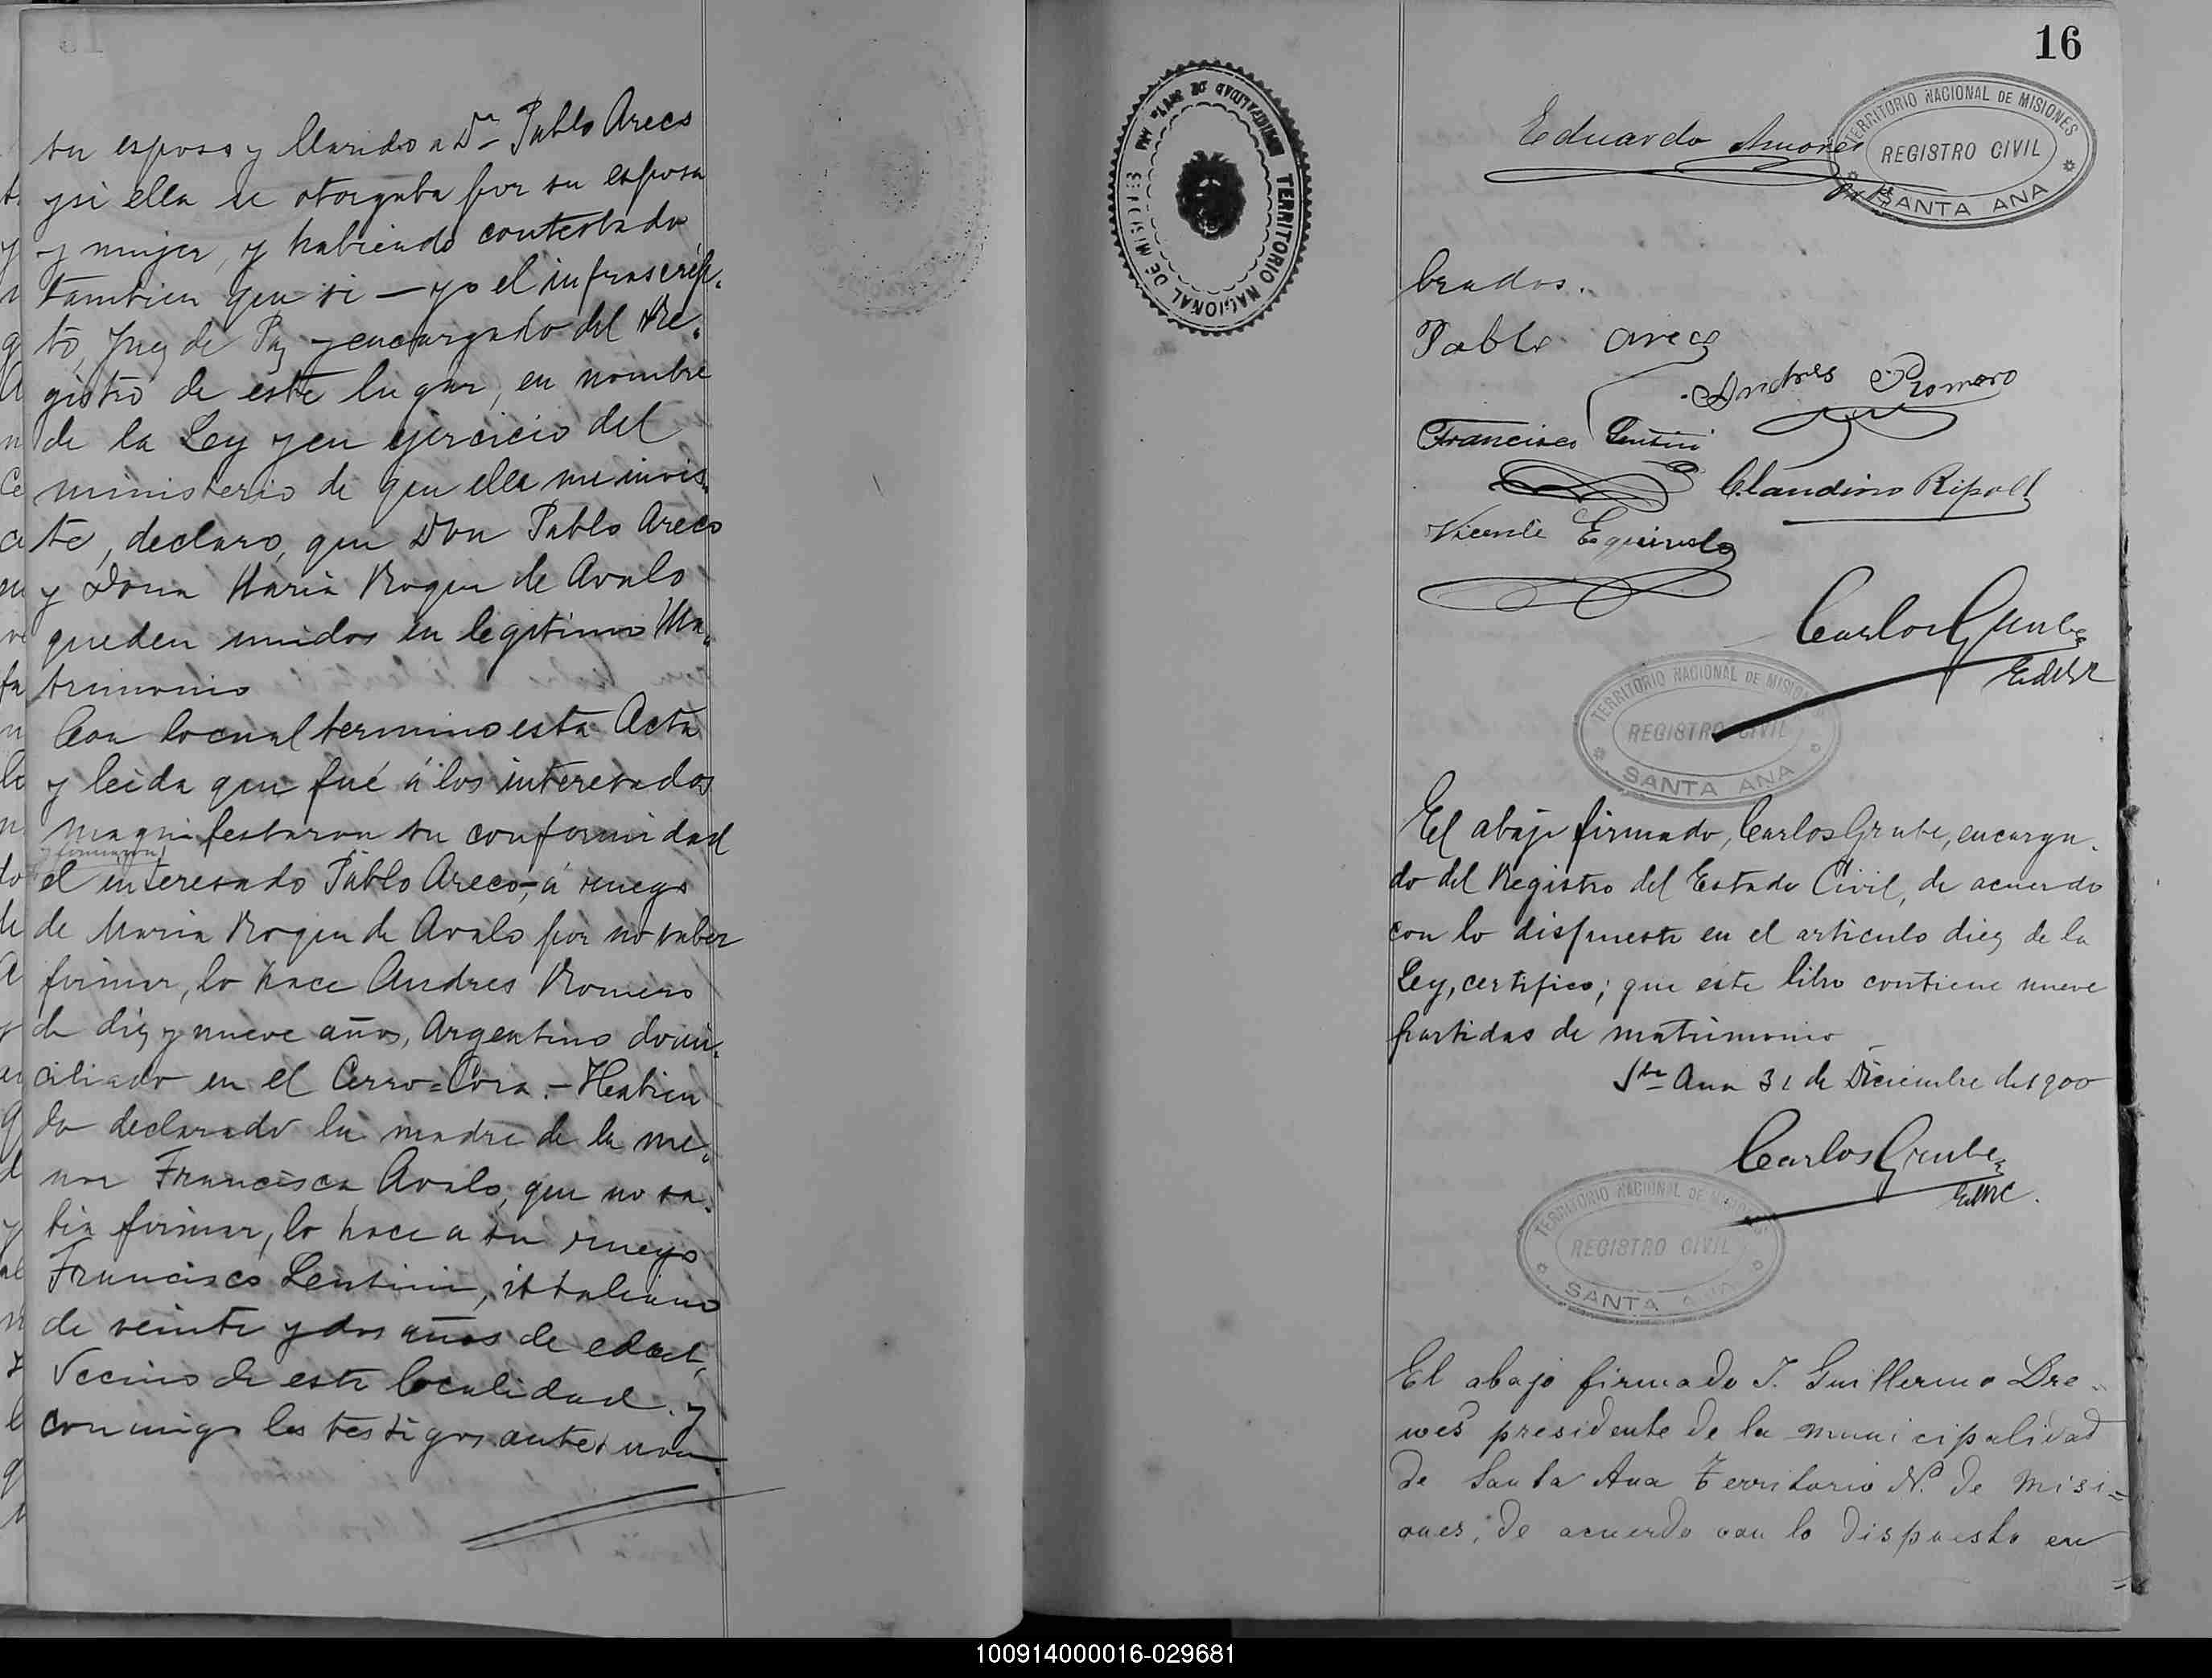 su esposo y Marido a Dn Pablo Areco
y si ella se otorgaba por su esposa
y mujer, y habiendo contestado
tambien que si — yo el infrascrip-
to, Juez de Paz y encargado del Re-
gistro de este lugar, en nombre
de la Ley y en ejercicio del
ministerio de que ella me invis-
te, declaro, que Don Pablo Areco
y Doña Maria Roque de Avalo
queden unidos en legitimo Ma-
trimonio
Con lo cual termino esta Acta
y leida que fué á los interesados
manifestaron su conformidad
y firmaron
el interesado Pablo Areco, á ruego
de Maria Roque de Avalo por no saber
firmar, lo hace Andres Romero
de diez y nueve años, Argentino domi-
ciliado en el Cerro=Cora. – Habien
do declarado la madre de la me-
nor Francisca Avalo, que no sa-
bia firmar, lo hace a su ruego
Francisco Lentini, ittaliano
de veinte y dos años de edad,
Vecino de esta localidad. y
conmigo los testigos antes nom-
16
Eduardo Amores
TERRITORIO NACIONAL DE MISIONES
REGISTRO CIVIL
SANTA ANA
TERRITORIO NACIONAL DE MISIONES
MUNICIPALIDAD DE SANTA ANA
brados.
Pablo Areco
Andres Romero
Francisco Lentini
Claudino Ripoll
Vicente
Carlos Grube
TERRITORIO NACIONAL DE MISIONES
REGISTRO CIVIL
SANTA ANA
El abajo firmado, Carlos Grube, encarga-
do del Registro del Estado Civil, de acuerdo
con lo dispuesto en el articulo diez de la
Ley, certifico; que este libro contiene nueve
partidas de matrimonio
Sta Ana 31 de Diciembre de 1900
Carlos Grube
TERRITORIO NACIONAL DE MISIONES
REGISTRO CIVIL
SANTA ANA
El abajo firmado J. Guillermo Dre-
wes presidente de la municipalidad
de Santa Ana Territorio N. de Misi=
ones, de acuerdo con lo dispuesto en
100914000016-029681